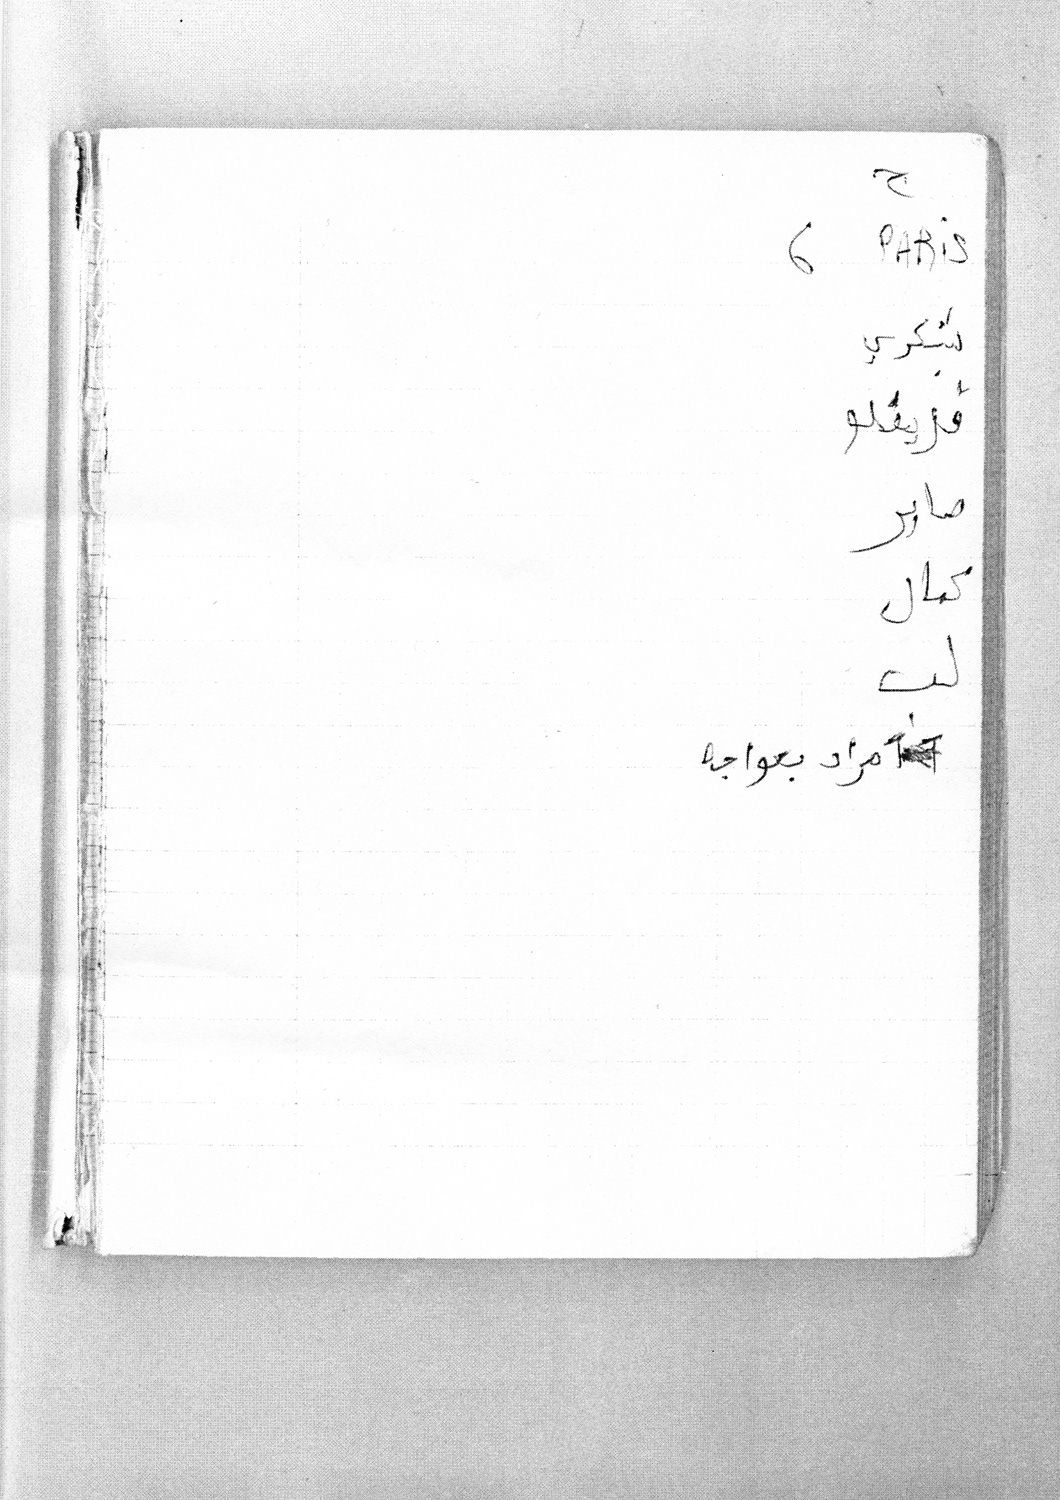 ح
PARIS 6
شكري
فزيقلو
صابر
كمال
لب
مراد بعواجه